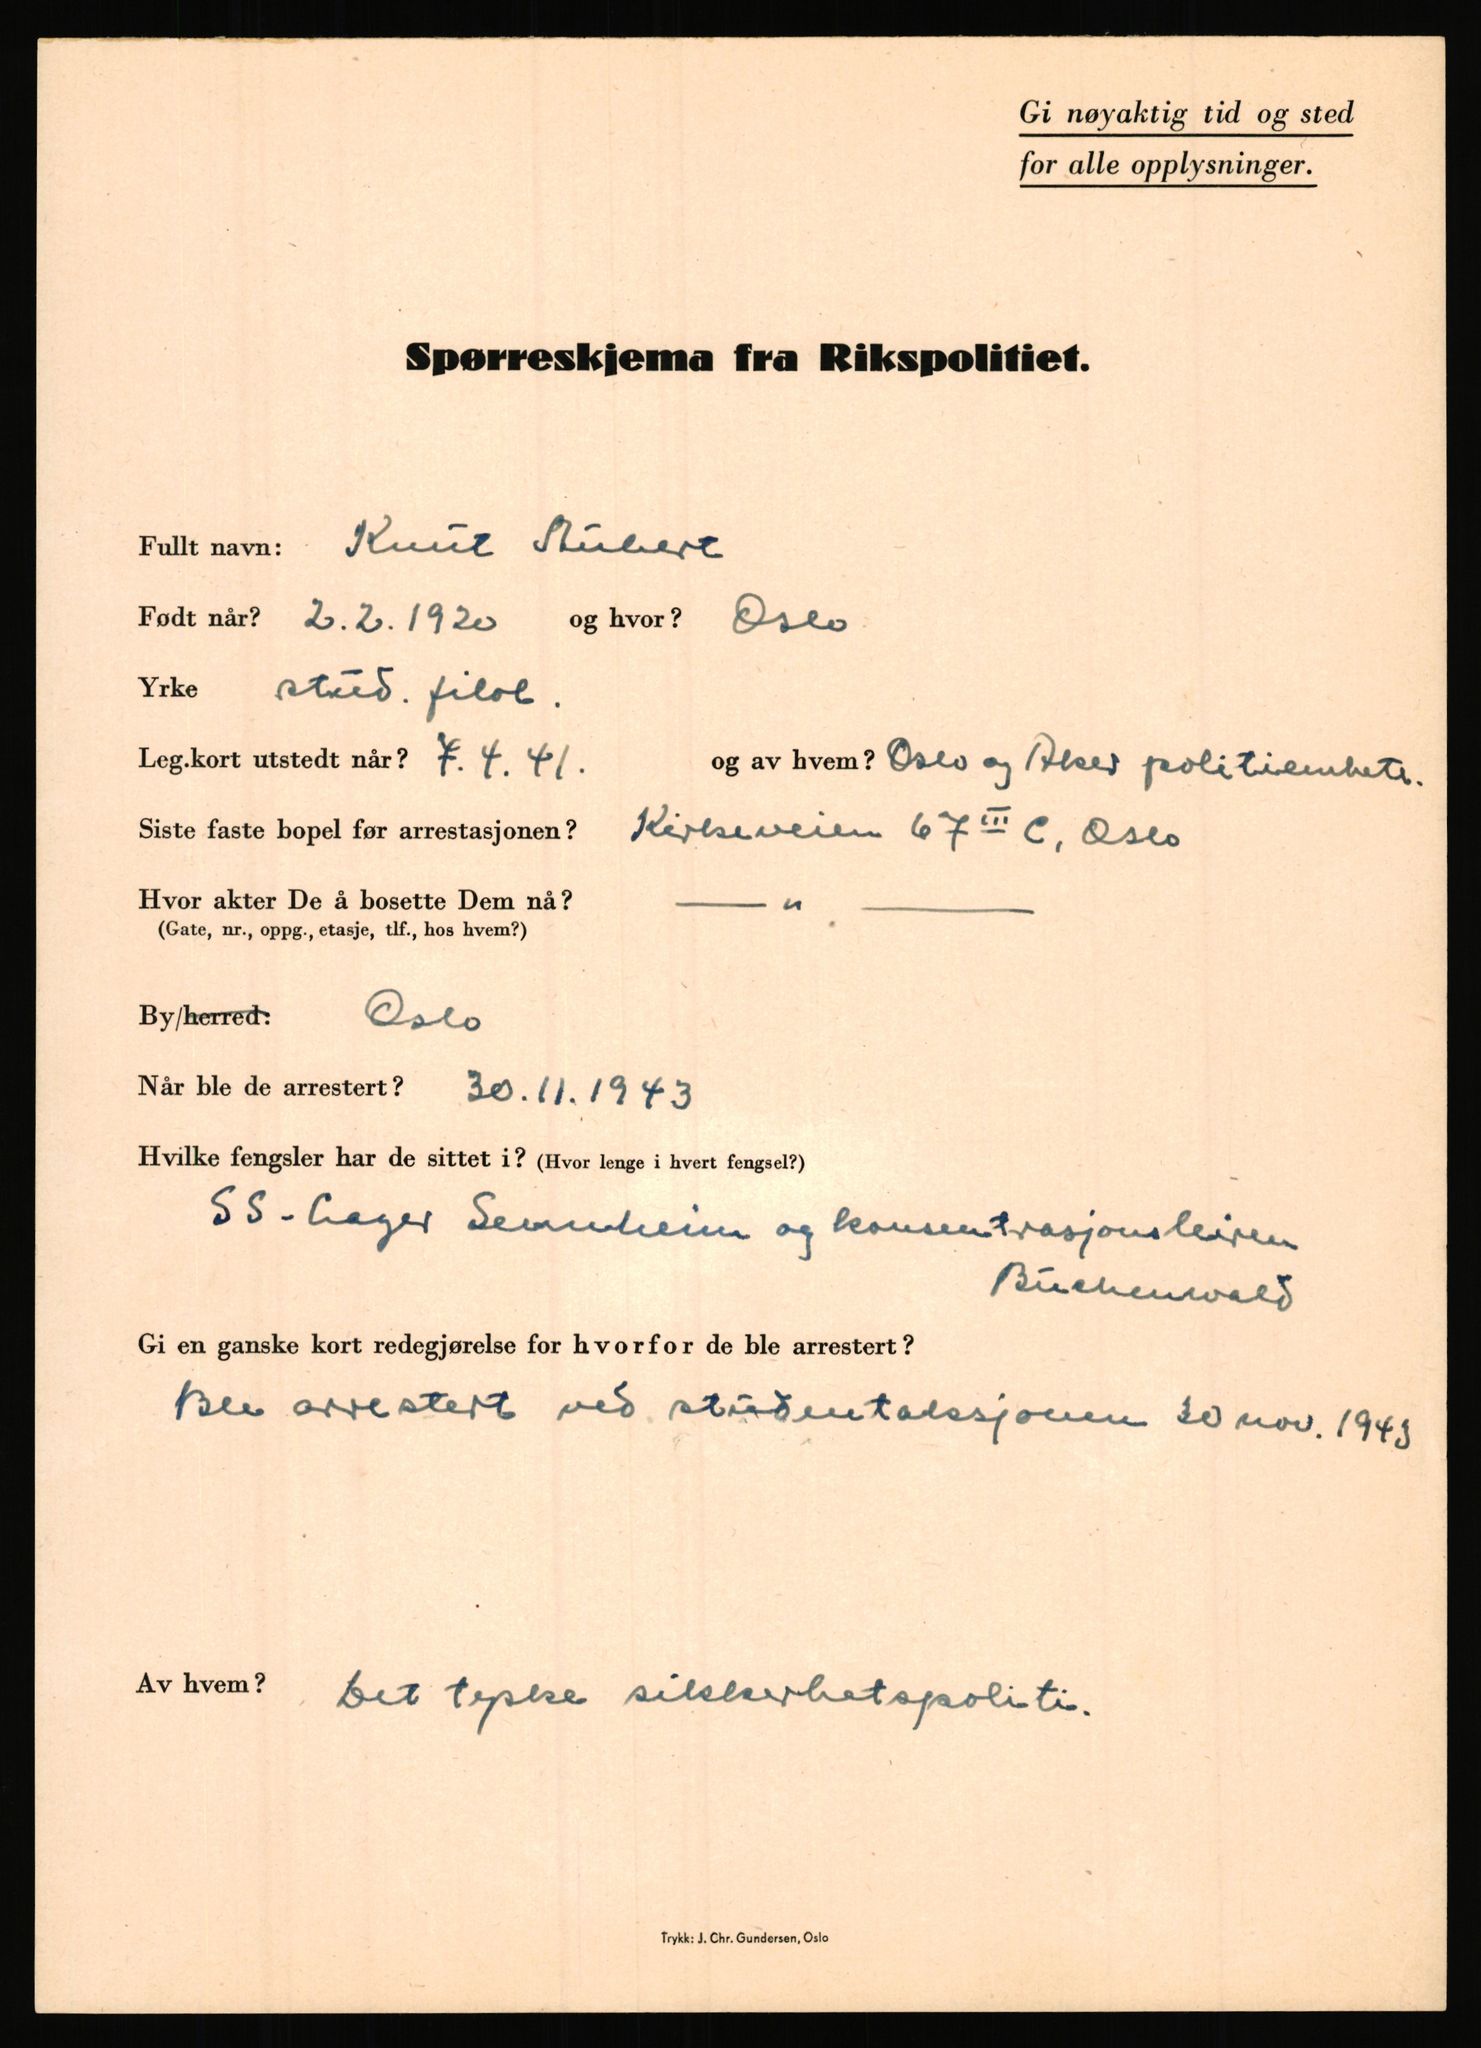 Gi nøyaktig tid og sted
for alle opplysninger.
Spørreskjema fra Rikspolitiet.
Fullt navn: Knut Stubert
Født når? 2.2.1920 og hvor? Oslo
Yrke stud. filol.
Leg.kort utstedt når? 7.4.41. og av hvem? Oslo og Aker politiembete.
Siste faste bopel før arrestasjonen? Kirkeveien 67 III C, Oslo
Hvor akter De å bosette Dem nå? — " —
(Gate, nr., oppg., etasje, tlf., hos hvem?)
By/herred: Oslo
Når ble de arrestert? 30.11.1943
Hvilke fengsler har de sittet i? (Hvor lenge i hvert fengsel?)
SS-Lager Sennheim og konsentrasjonsleiren
Buchenwald
Gi en ganske kort redegjørelse for hvorfor de ble arrestert?
Ble arrestert ved studentaksjonen 30 nov. 1943
Av hvem? Det tyske sikkerhetspoliti.
Trykk: J. Chr. Gundersen, Oslo